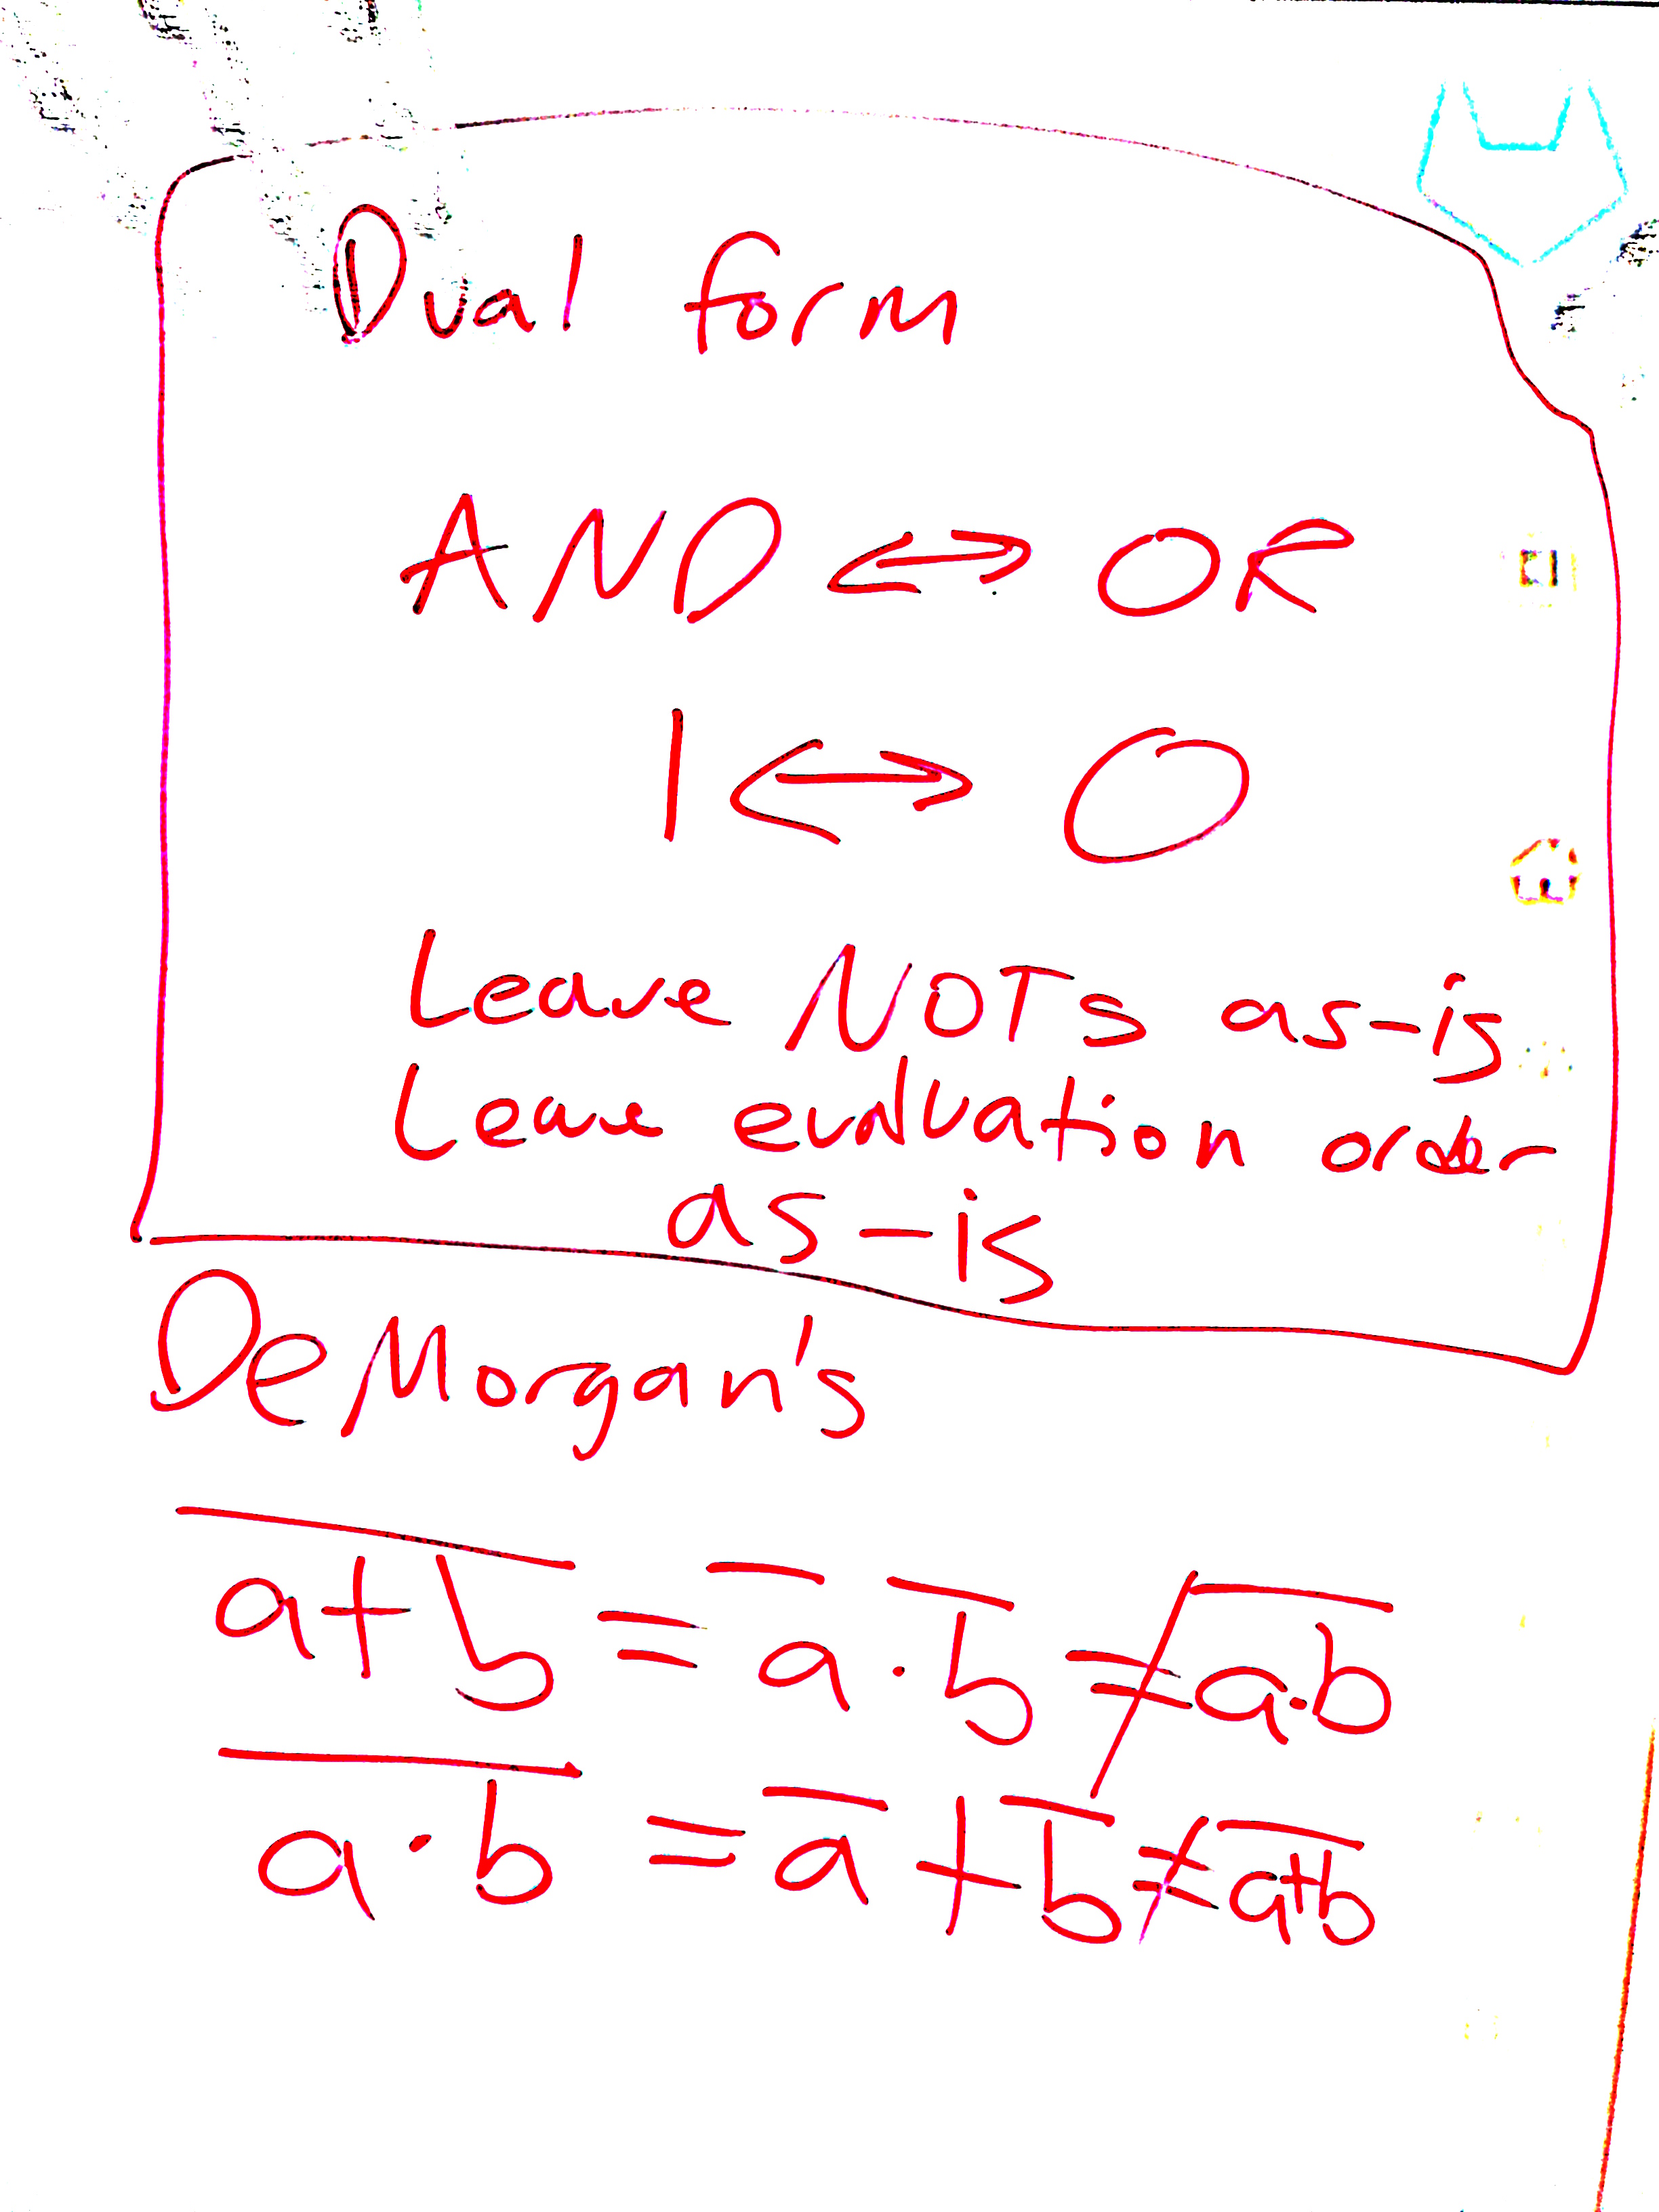 Dual form
AND <-> OR
1 <-> 0
Leave NOTs as-is
Leave evaluation order
as-is
DeMorgan's
$\overline{a+b} = \overline{a} \cdot \overline{b} \neq \overline{a \cdot b}$
$\overline{a \cdot b} = \overline{a} + \overline{b} \neq \overline{a+b}$